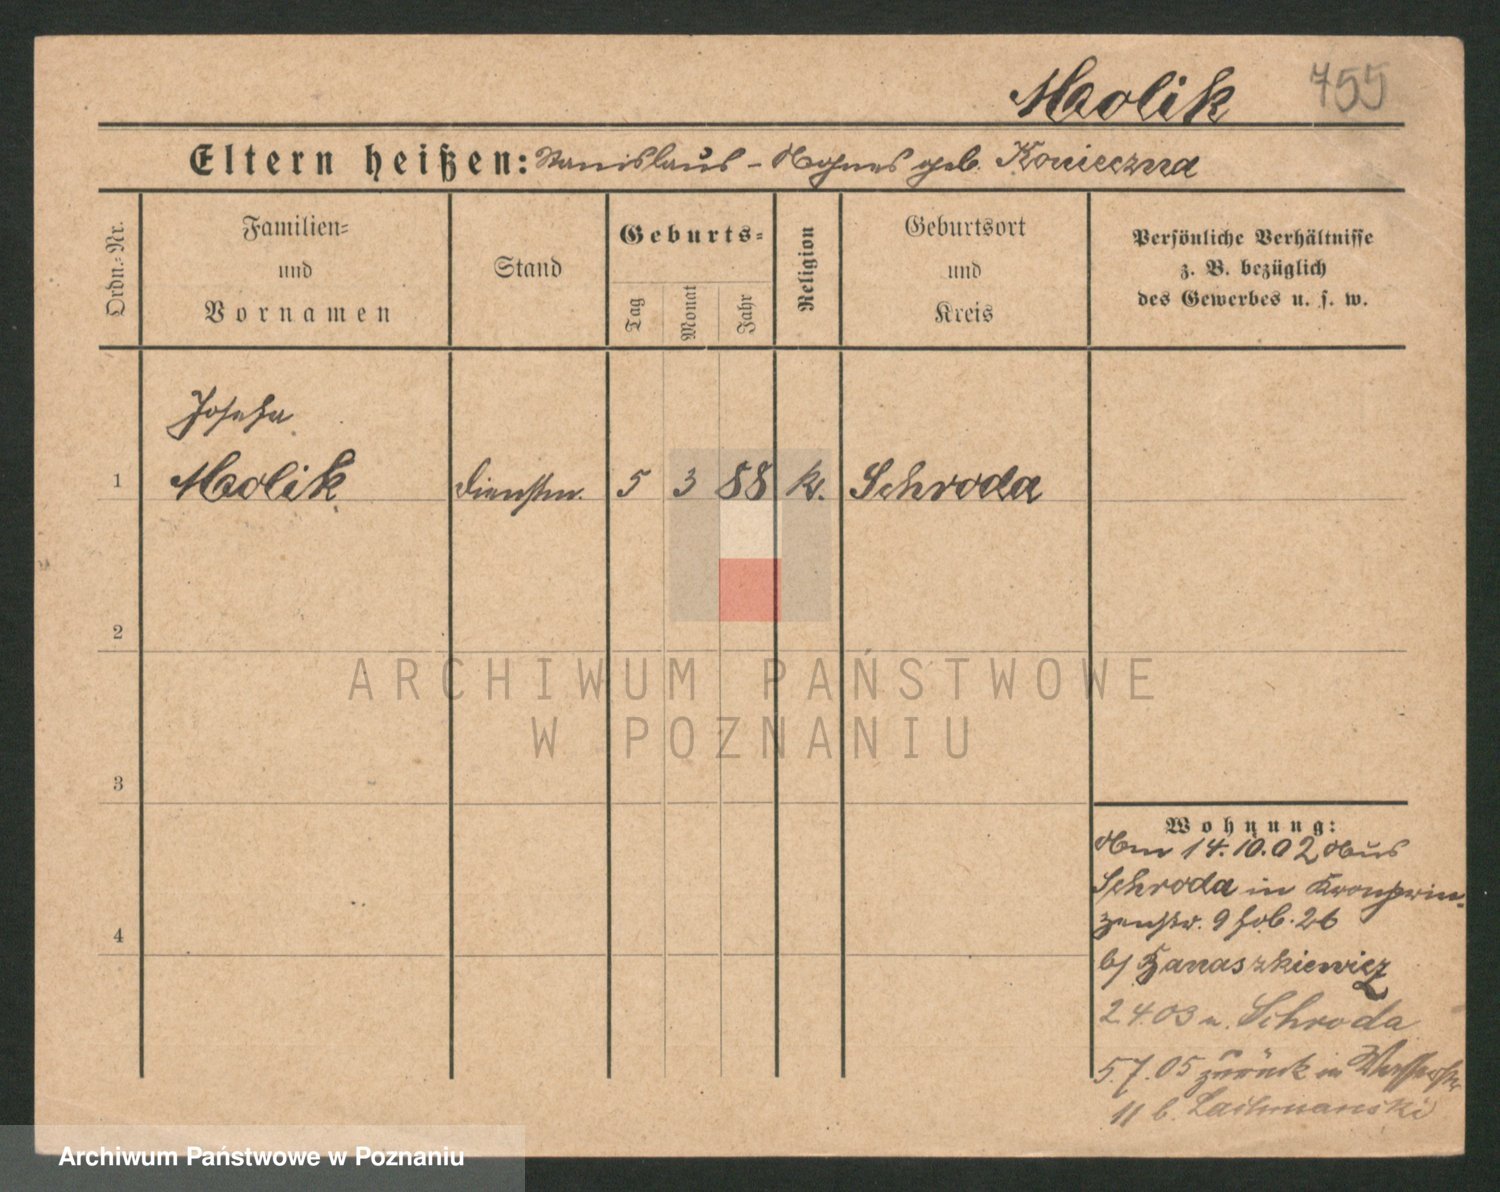 Molik 755
Eltern heißen: Stanislaus - Agnes geb. Konieczna
Ordn.-Nr.
Familien-
und
Vornamen
Stand
Geburts-
Tag
Monat
Jahr
Religion
Geburtsort
und
Kreis
Persönliche Verhältnisse
z. B. bezüglich
des Gewerbes u. s. w.
Josefa
1 Molik Dienstm. 5 3 88 k. Schroda
2
3
4
Wohnung:
Am 14.10.02 Aus
Schroda in Kronprin-
zenstr. 9
b/ Banaszkiewicz
2 4.03 n. Schroda
5.7.05 zurück in
11 b. Lachmanski
ARCHIWUM PAŃSTWOWE
W POZNANIU
Archiwum Państwowe w Poznaniu